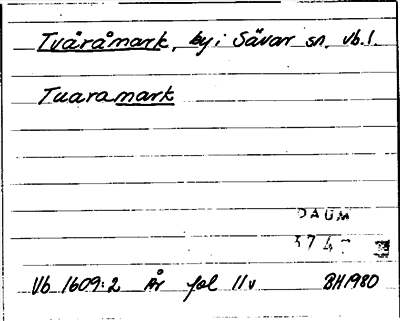 Tvåråmark, by i Sävar sn. Vb. l.
Tuaramark
DAUM
Vb 1609:2 År fol 11v BH1980